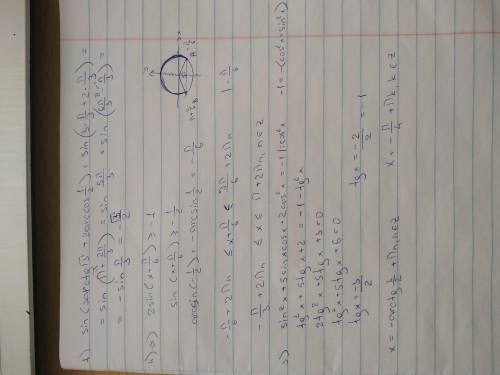 1) sin(3arcctg√3 + 2arccos 1/2) = sin(3·π/3 + 2·π/3) =
= sin(π + 2π/3) = sin 5π/3 = sin(6π/3 - π/3) =
= -sin π/3 = -√3/2
a) 2sin(x+π/6) ≥ -1
sin(x+π/6) ≥ -1/2
arcsin(-1/2) = -arcsin 1/2 = -π/6
-π/6 + 2πn ≤ x + π/6 ≤ 7π/6 + 2πn | -π/6
-π/3 + 2πn ≤ x ≤ π + 2πn, n∈z
sin²x + 5sinxcosx + 2cos²x = -1 | :cos²x -1 = -(cos²x + sin²x)
tg²x + 5tgx + 2 = -1 - tg²x
2tg²x + 5tgx + 3 = 0
tg²x + 5tgx + 6 = 0
tgx = -3/2 tgx = -2/2 = -1
x = -π/4 + πk, k∈z